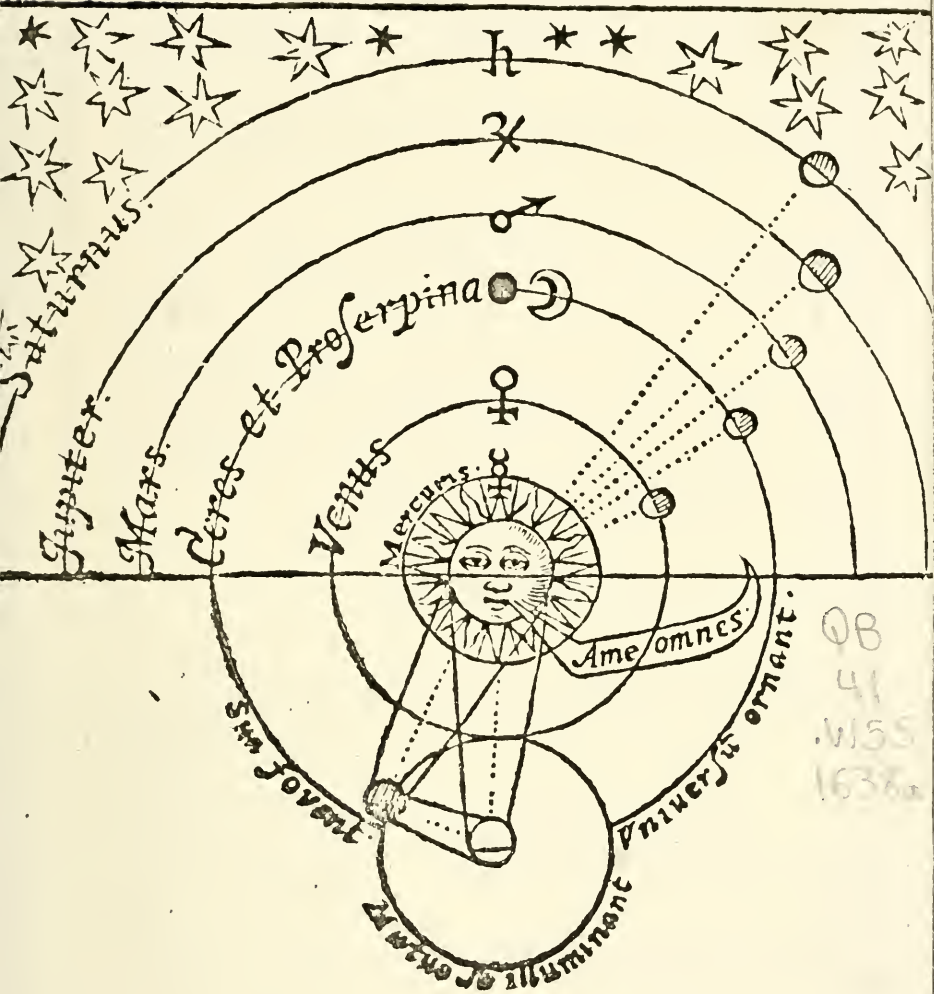 Saturnus.
Jupiter.
Mars.
Ceres et Proſerpina
Venus
Mercurius.
Ame omnes.
Sua fovent.
Mutuo ſe illuminant
Vniuerſū ornant.
QB
41
.W55
1638a